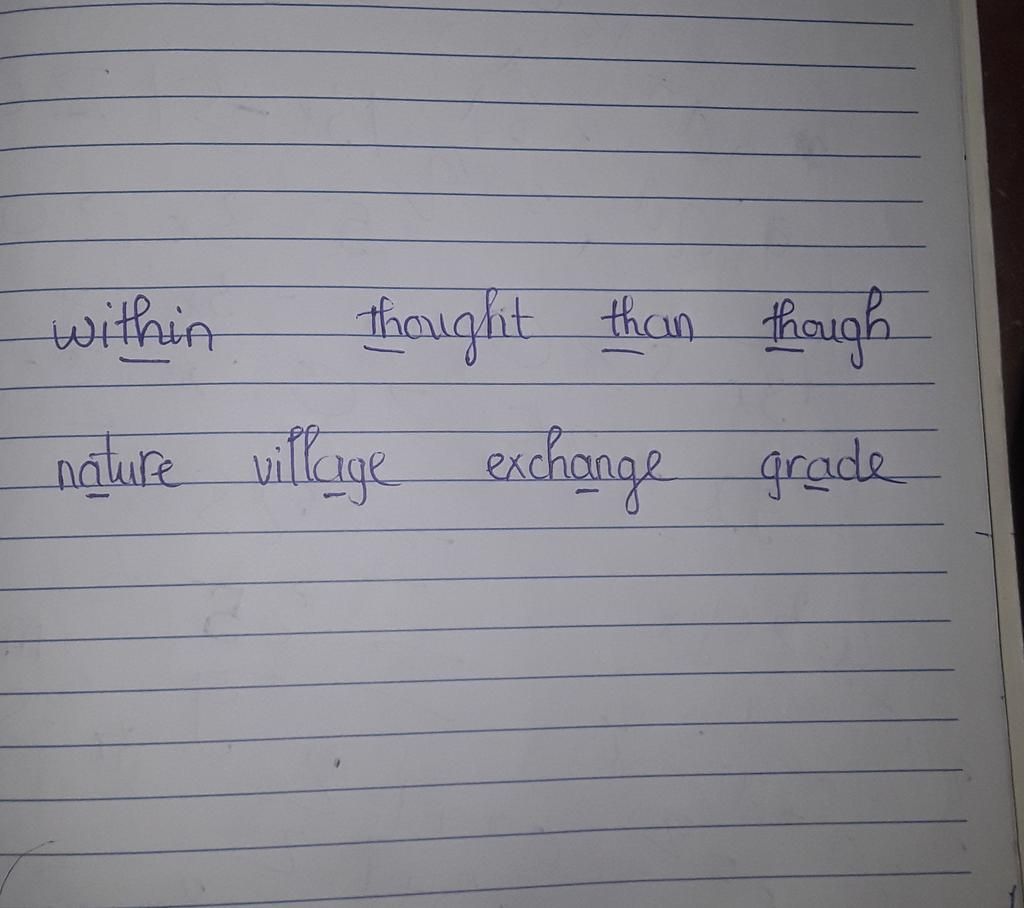 within thought than though
nature village exchange grade